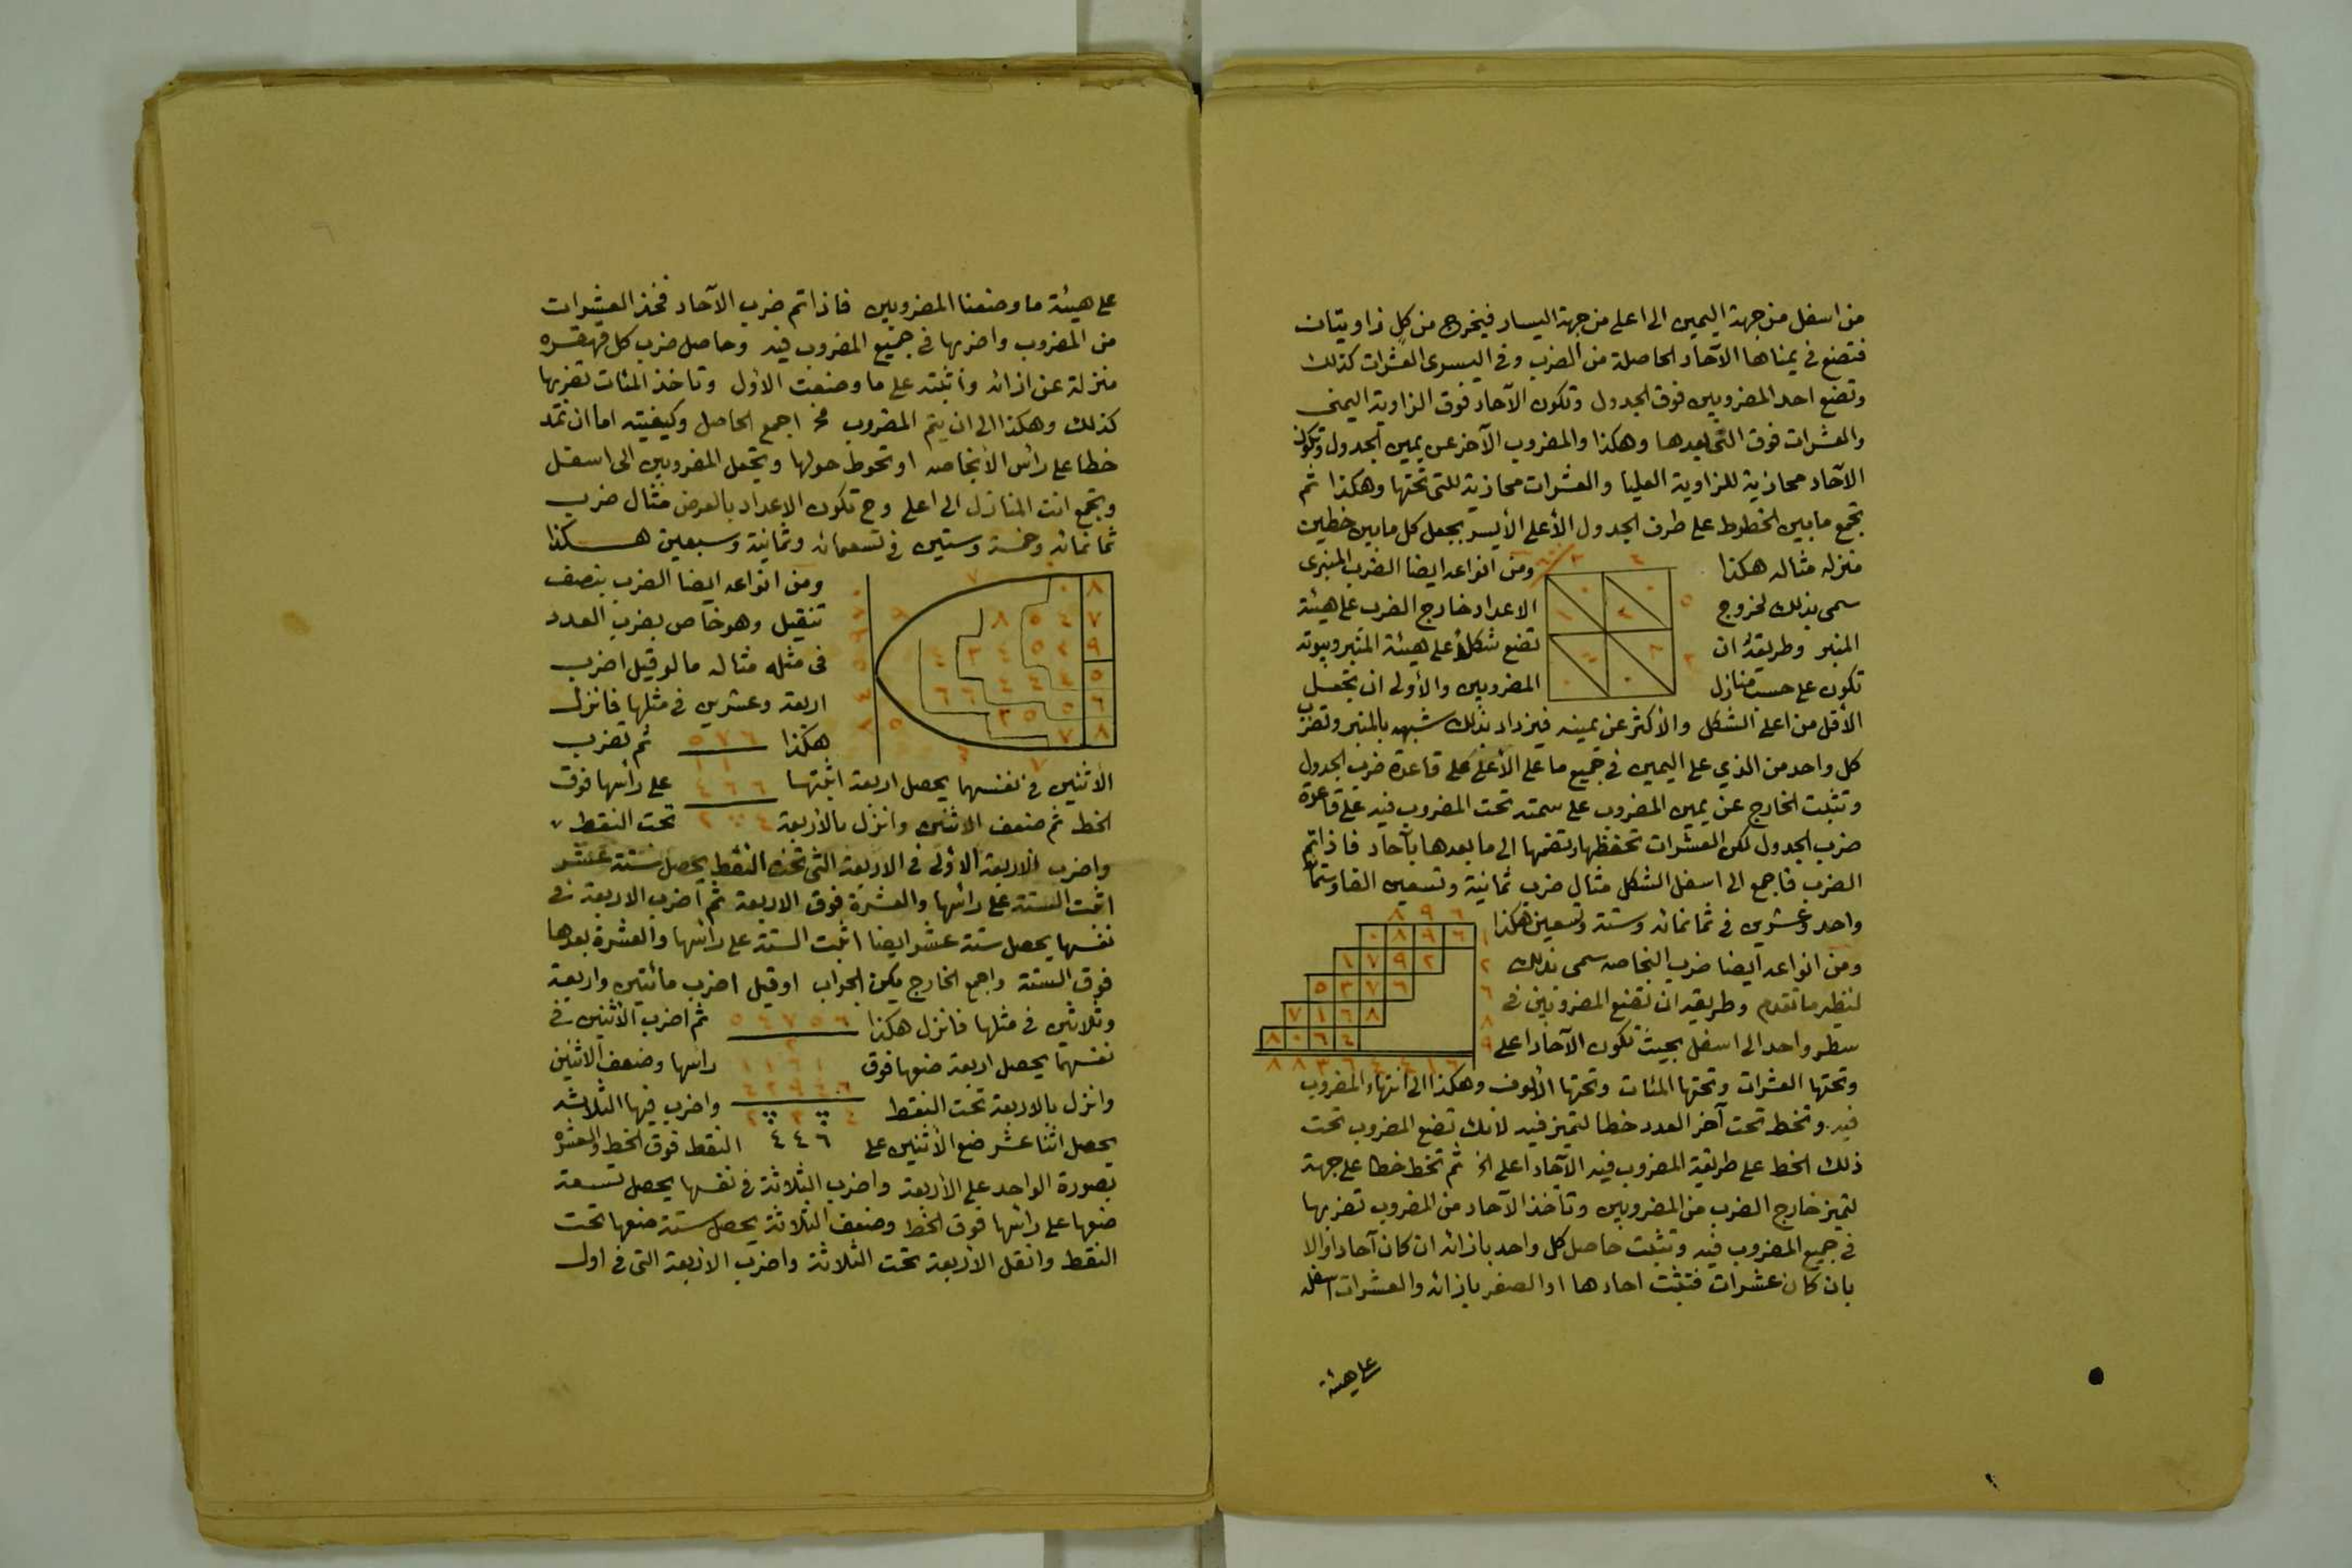 من اسفل من جهة اليمين الى اعلى من جهة اليسار فيخرج من كل زاويتان
فتضع في يمناها الآحاد الحاصلة من الضرب وفى اليسرى العشرات كذلك
وتضع احد المضروبين فوق الجدول وتكون الآحاد فوق الزاوية اليمنى
والعشرات فوق التى بعدها وهكذا والمضروب الآخر عن يمين الجدول وتكون
الآحاد محاذية للزاوية العليا والعشرات محاذية للتى تحتها وهكذا ثم
تجمع ما بين الخطوط على طرف الجدول الأعلى الأيسر بجعل كل ما بين خطين
منزله مثاله هكذا ومن انواعه ايضا الضرب المنبرى
سمى بذلك لخروج الاعداد خارج الضرب على هيئة
المنبر وطريقه ان تضع شكلا على هيئة المنبر وبيوته
تكون على حسب منازل المضروبين والأولى ان تجعل
الأقل من اعلى الشكل والأكثر عن يمينه فيزداد بذلك شبهه بالمنبر وتضرب
كل واحد من الذي على اليمين في جميع ما على الأعلى على قاعدة ضرب الجدول
وتثبت الخارج عن يمين المضروب على سمته تحت المضروب فيه على قاعدة
ضرب الجدول لكن العشرات تحفظها وتضمها الى ما بعدها بآحاد فاذا تم
الضرب فاجمع الى اسفل الشكل مثال ضرب ثمانية وتسعين الفا وستمائة
واحد وعشرين في ثمانمائه وستة وتسعين هكذا
٨ ٩ ٦
٠ ٨ ٩ ٦ ١
١ ٧ ٩ ٢ ٢
٥ ٣ ٧ ٦ ٦
٧ ١ ٦ ٨ ٨
٨ ٠ ٦ ٤ ٩
٨ ٨ ٣ ٦ ٤ ٤ ١ ٦
ومن انواعه ايضا ضرب النجاصه سمى بذلك
لنظير ما تقدم وطريقه ان تضع المضروبين في
سطر واحد الى اسفل بحيث تكون الآحاد اعلى
وتحتها العشرات وتحتها المئات وتحتها الألوف وهكذا الى انتهاء المضروب
فيه وتخط تحت آخر العدد خطا لتميز فيه لانك تضع المضروب تحت
ذلك الخط على طريقة المضروب فيه الآحاد اعلى الخ ثم تخط خطا على جهة
لتميز خارج الضرب من المضروبين وتأخذ الآحاد من المضروب تضربها
في جميع المضروب فيه وتثبت حاصل كل واحد بازائه ان كان آحادا والا
بان كان عشرات فتثبت احادها او الصفر بازائه والعشرات اسفله
على هيئة
على هيئة ما وضعنا المضروبين فاذا تم ضرب الآحاد فخذ العشرات
من المضروب واضربها في جميع المضروب فيه وحاصل ضرب كل
منزلة عن ازائه واثبته على ما وضعت الأول وتاخذ المئات تضربها
كذلك وهكذا الى ان يتم المضروب اجمع الحاصل وكيفيته اما ان تمد
خطا على راس الانجاصه او تحوط حولها وتجعل المضروبين الى اسفل
وتجمع انت المنازل الى اعلى وح تكون الاعداد بالعرض مثال ضرب
ثمانمائه وخمسة وستين في تسعمائه وثمانية وسبعين هكذا
ومن انواعه ايضا الضرب بنصف
تنقيل وهو خاص بضرب العدد
فى مثله مثاله ما لو قيل اضرب
اربعة وعشرين في مثلها فانزل
هكذا ٥ ٧ ٦ ثم تضرب
الاثنين في نفسهما يحصل اربعة اثبتها ٤ ٦ ٦ على رأسها فوق
الخط ثم ضعف الاثنين وانزل بالأربعة ٢ ٤ تحت النقط
واضرب الاربعة الأولى في الاربعة التى تحت النقط يحصل ستة عشر
اثبت الستة على رأسها والعشرة فوق الاربعة ثم اضرب الاربعة في
نفسها يحصل ستة عشر ايضا اثبت الستة على رأسها والعشرة بعدها
فوق الستة واجمع الخارج يكن الجواب او قيل اضرب مائتين واربعة
وثلاثين في مثلها فانزل هكذا ٥ ٤ ٧ ٥ ٦ ثم اضرب الأثنين في
نفسهما يحصل اربعة ضعها فوق راسها وضعف الاثنين
وانزل بالاربعة تحت النقط ٢ ٣ ٤ واضرب فيها الثلاثة
يحصل اثنا عشر ضع الأثنين على ٤ ٤ ٦ النقط فوق الخط والعشرة
بصورة الواحد على الأربعة واضرب الثلاثة في نفسها يحصل تسعة
ضعها على رأسها فوق الخط وضعف الثلاثة يحصل ستة ضعها تحت
النقط وانقل الأربعة تحت الثلاثة واضرب الاربعة التى في اول